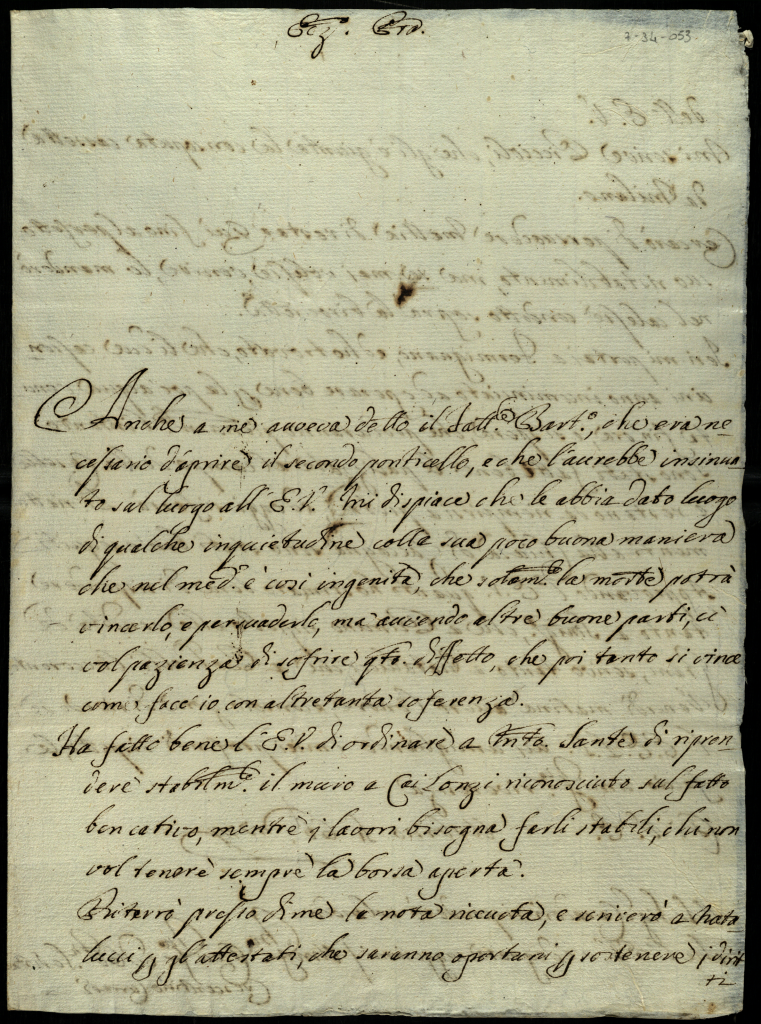 Ecz. Pro.
7-34-053
Anche a me aveva detto il Fatt.e Bart.o, che era ne=
cessario d'aprire il secondo ponticello, e che l'avrebbe insinua=
to sul luogo all'E.V. mi dispiace che le abbia dato luogo
di qualche inquietudine colla sua poco buona maniera
che nel med.o è così ingenita, che solam.e la morte potrà
vincerlo, e persuaderlo, ma avendo altre buone parti, ci
vol pazienza di sofrire qto. diffetto, che poi tanto si vince
come facc'io con altretanta soferenza.
Ha fatto bene l'E.V. di ordinare a Sante di ripren=
dere stabilm.e il muro a Ca Lonzi riconosciuto sul fatto
ben cativo, mentre j lavori bisogna farli stabili, chi non
vol tenere sempre la borsa aperta.
Riterrò presso di me la nota ricevuta, e scriverò a Nata
lucci gl'attestati, che saranno oportuni sostenere j dirit
ti